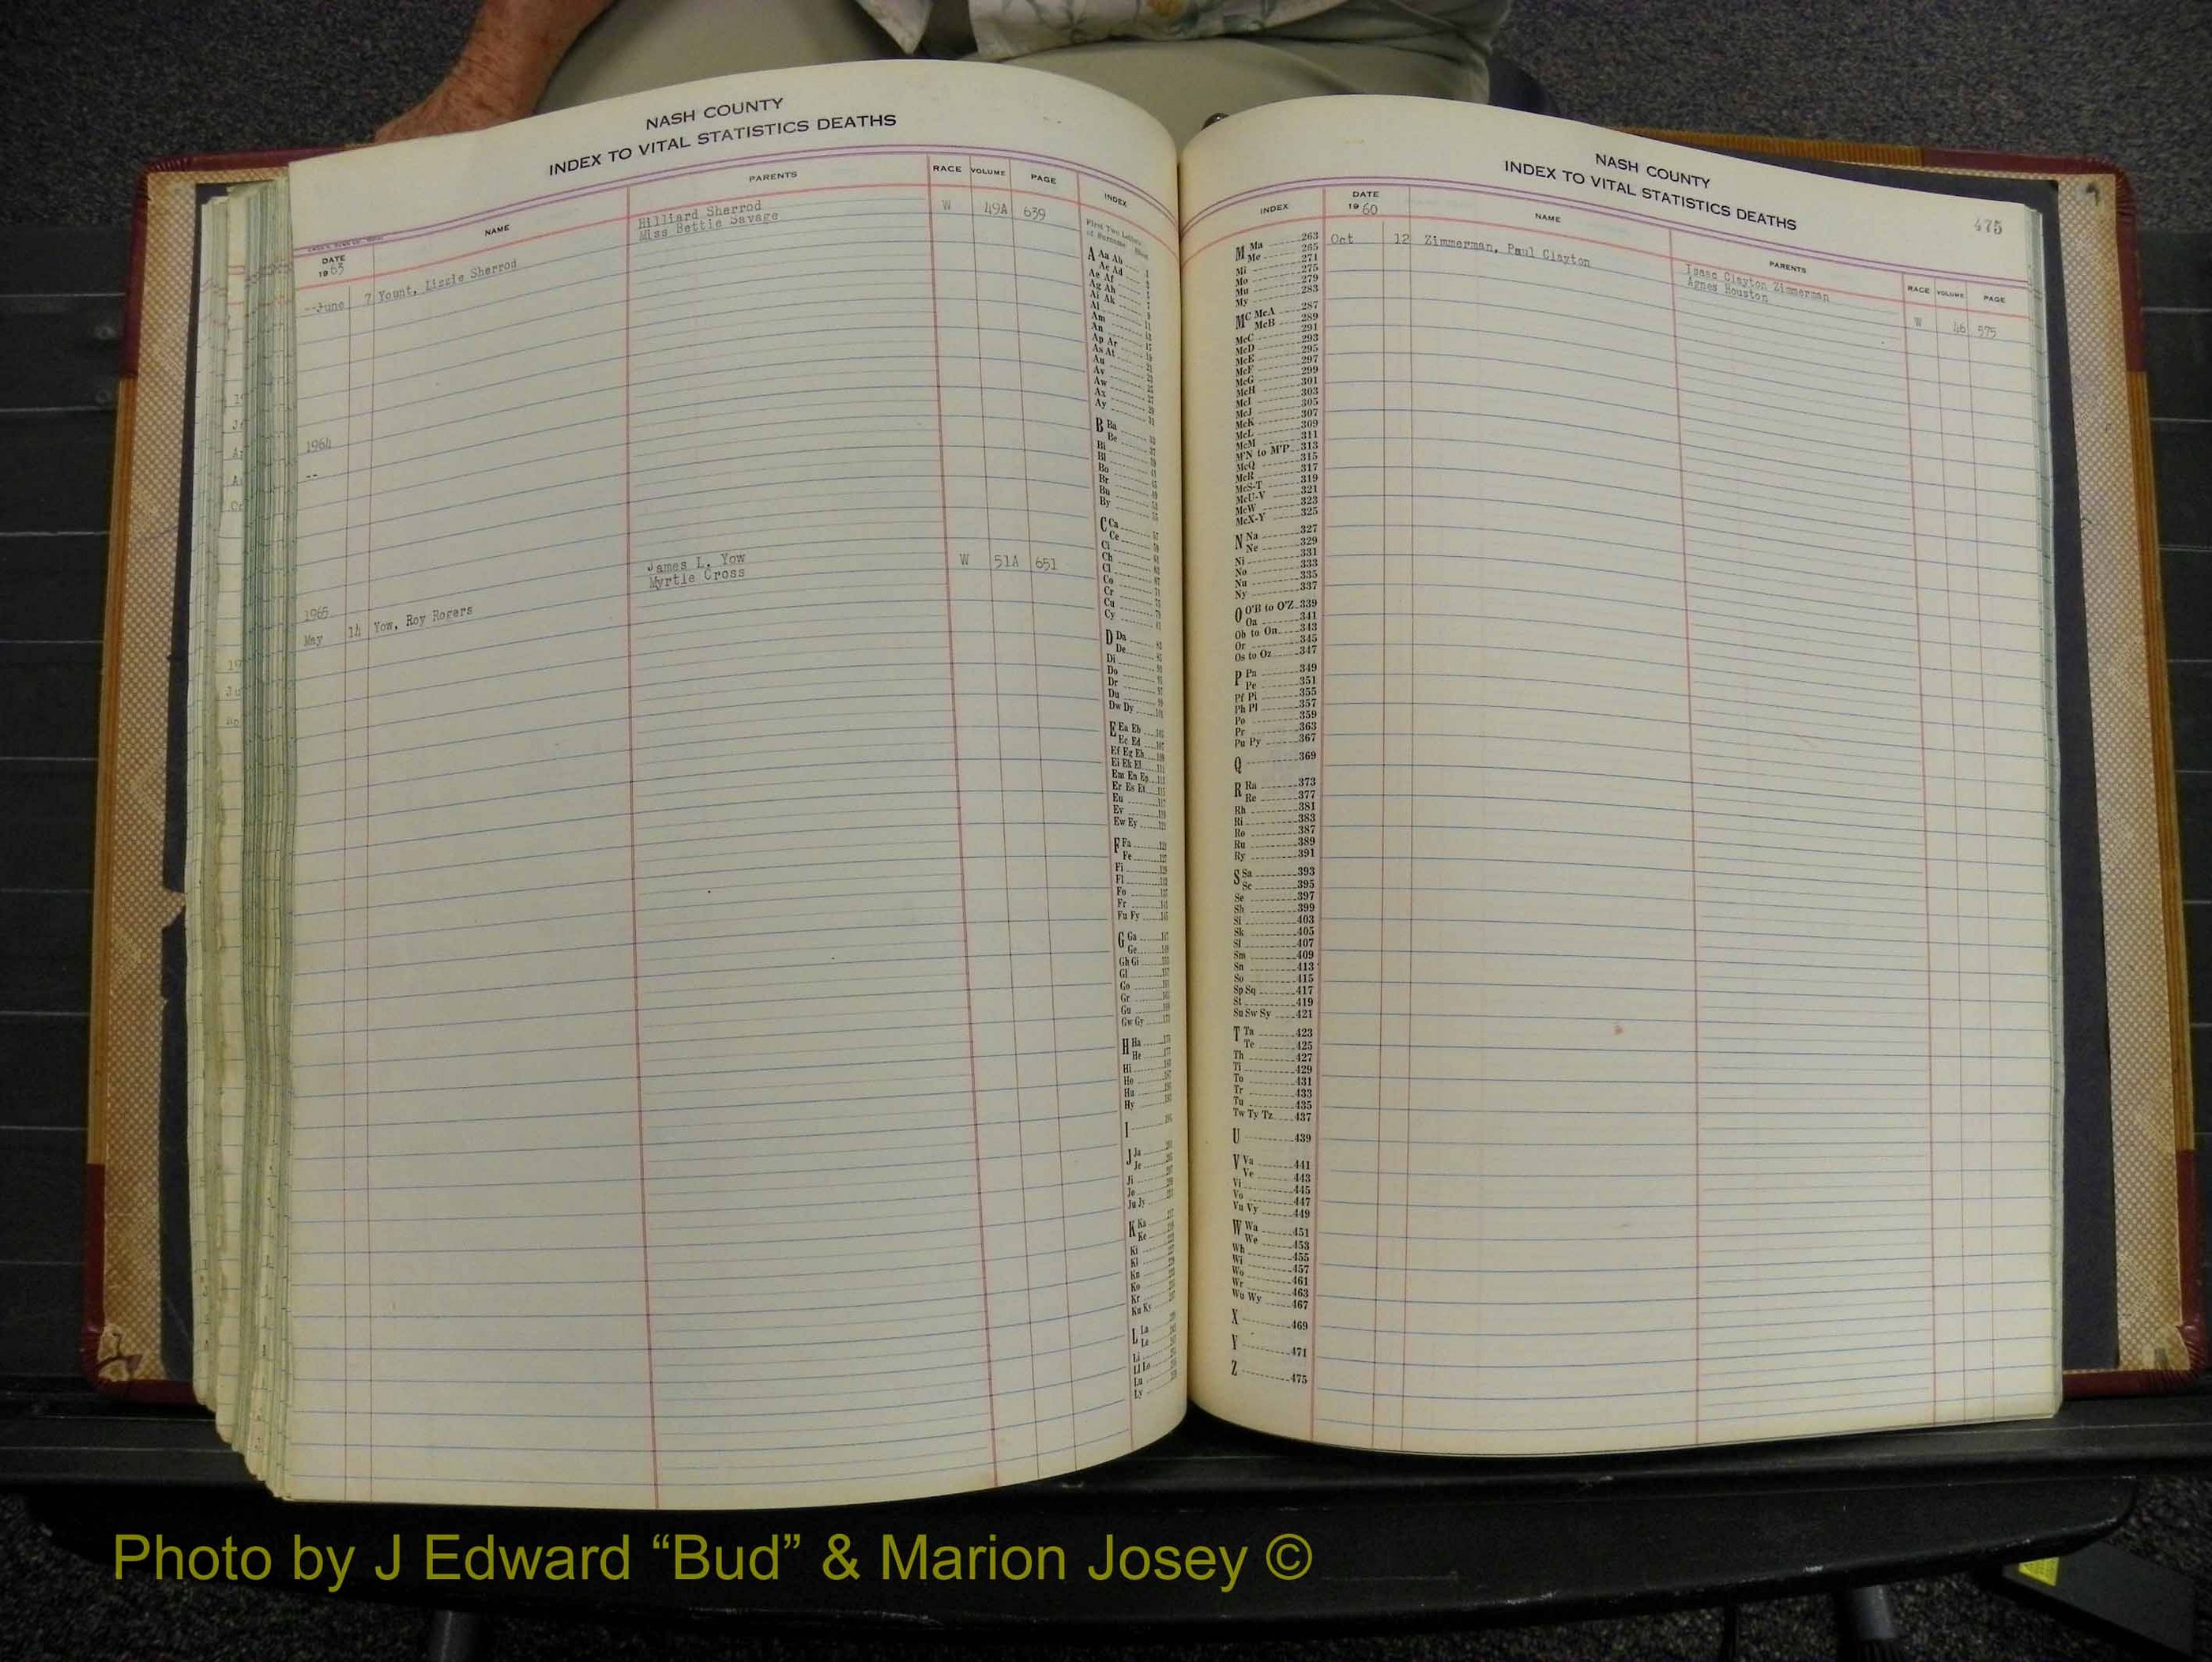 NASH COUNTY
INDEX TO VITAL STATISTICS DEATHS
DATE
1963
NAME
PARENTS
RACE VOLUME PAGE
Hilliard Sherrod
Miss Bettie Savage
W 49A 639
--June 7 Yount, Lizzie Sherrod
1964
--
James L. Yow
Myrtle Cross
W 51A 651
1965
May 14 Yow, Roy Rogers
INDEX
First Two Letters
of Surname
A Aa Ab
Ac Ad
Ae Af
Ag Ah
Ai Ak
Al
Am
An
Ap Ar
As At
Au
Av
Aw
Ax
Ay
B Ba
Be
Bi
Bl
Bo
Br
Bu
By
C Ca
Ce
Ci
Ch
Cl
Co
Cr
Cu
Cy
D Da
De
Di
Do
Dr
Du
Dw Dy
E Ea Eb
Ec Ed
Ef Eg Eh
Ei Ek El
Em En Ep
Er Es Et
Eu
Ev
Ew Ey
F Fa
Fe
Fi
Fl
Fo
Fr
Fu Fy
G Ga
Ge
Gh Gi
Gl
Go
Gr
Gu
Gw Gy
H Ha
He
Hi
Ho
Hu
Hy
I
J Ja
Je
Ji
Jo
Ju Jy
K Ka
Ke
Ki
Kl
Kn
Ko
Kr
Ku Ky
L La
Le
Li
Ll Lo
Lu
Ly
NASH COUNTY
INDEX TO VITAL STATISTICS DEATHS
475
INDEX
DATE
1960
NAME
PARENTS
RACE VOLUME PAGE
Oct 12 Zimmerman, Paul Clayton
Isaac Clayton Zimmerman
Agnes Houston
W 46 575
M Ma 263
Me 265
Mi 271
Mo 275
Mu 279
My 283
MC McA 287
McB 289
McC 291
McD 293
McE 295
McF 297
McG 299
McH 301
McI 303
McJ 305
McK 307
McL 309
McM 311
M'N to M'P 313
McQ 315
McR 317
McS-T 319
McU-V 321
McW 323
McX-Y 325
N Na 327
Ne 329
Ni 331
No 333
Nu 335
Ny 337
O O'B to O'Z 339
Oa 341
Ob to On 343
Or 345
Os to Oz 347
P Pa 349
Pe 351
Pf Pi 355
Ph Pl 357
Po 359
Pr 363
Pu Py 367
Q 369
R Ra 373
Re 377
Rh 381
Ri 383
Ro 387
Ru 389
Ry 391
S Sa 393
Sc 395
Se 397
Sh 399
Si 403
Sk 405
Sl 407
Sm 409
Sn 413
So 415
Sp Sq 417
St 419
Su Sw Sy 421
T Ta 423
Te 425
Th 427
Ti 429
To 431
Tr 433
Tu 435
Tw Ty Tz 437
U 439
V Va 441
Ve 443
Vi 445
Vo 447
Vu Vy 449
W Wa 451
We 453
Wh 455
Wi 457
Wo 461
Wr 463
Wu Wy 467
X 469
Y 471
Z 475
Photo by J Edward “Bud” & Marion Josey ©